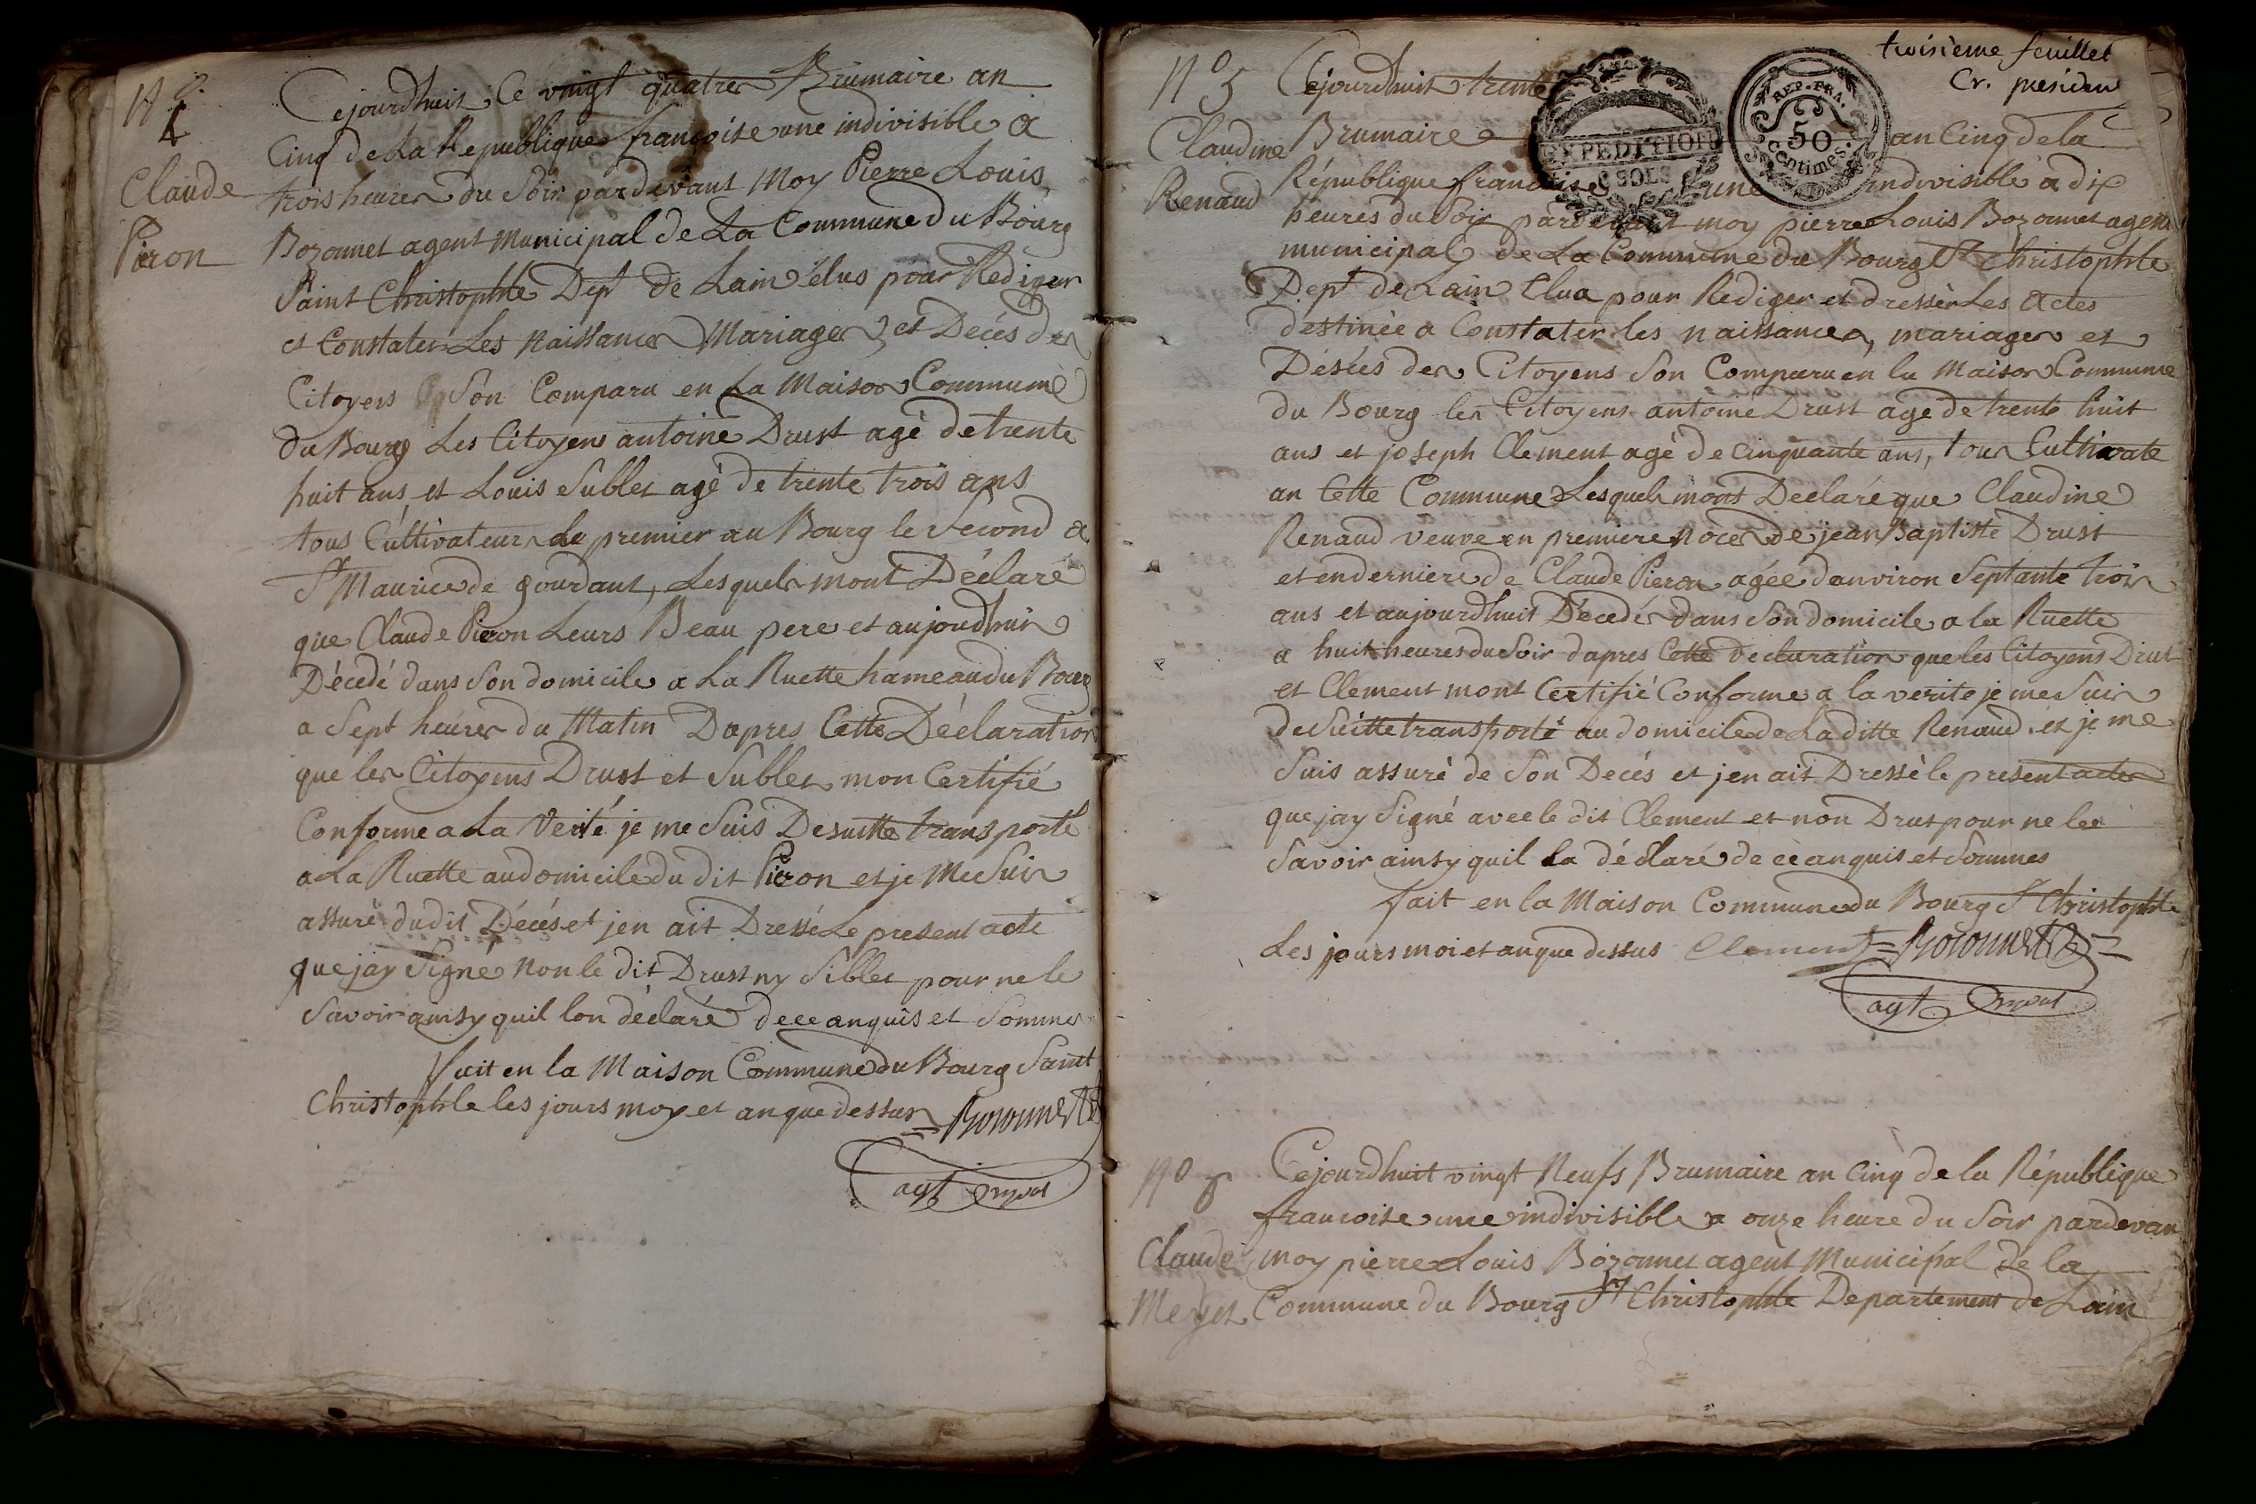 N° 4
Claude
Pieron
Cejourdhuit Ce vingt quatre Brumaire an
Cinq de La Republique françoise une indivisible a
trois heures du Soir pardevant Moy Pierre Louis
Bozonnet agent Municipal de La Commune du Bourg
Saint Christophle Dept De Lain élus pour Rediger
et Constater Les Naissances Mariages et Décés des
Citoyens Son Comparu en La Maison Commune
du Bourg Les Citoyens antoine Drust agé de trente
huit ans et Louis Sublet agé de trente trois ans
tous Cultivateurs Le premier au Bourg le Second a
St Maurice de gourdant, Lesquels mont Déclaré
que Claude Pieron Leurs Beau pere et aujourdhuis
Décedé dans Son domicile a La Ruette hameau du Bourg
a Sept heures du Matin D'apres Cette Déclaration
que les Citoyens Drust et Sublet mon Certifié
Conforme a La Verité je me Suis Desuitte transporté
a La Ruette au domicile du dit Pieron et je Me Suis
assuré dudit Décés et jen ait Dressé Le present acte
que jay Signé Non le dit Drust ny Siblet pour ne le
Savoir ainsy quil lon déclaré de ce anquis et Sommes
fait en la Maison Commune du Bourg Saint
Christophle les jours moy et an que dessus Bozonnet
agt mpal
troisieme feuillet
Cr. presiden
N° 5
Claudine
Renaud
EXPEDITION
REP. FRA.
50
centimes.
Cejourdhuit trente
Brumaire an Cinq de la
République francoise une indivisible a dix
heures du Soir pardevant moy pierre Louis Bozonnet agent
municipal de La Commune du Bourg St Christophle
Dept de Lain Elua pour Rediger et dresser Les actes
destinée a Constater les naissances, mariages et
Désées des Citoyens Son Comparu en la Maison Commune
du Bourg les Citoyens antoine Drust agé de trente huit
ans et joseph Clement agé de Cinquante ans, tous Cultivate
an Cette Commune Lesquels mont Declaré que Claudine
Renaud veuve en premiere Noces de jean Baptiste Drust
et en derniere de Claude Pieron agée danviron Septante trois
ans et aujourdhuit Décedés dans Son domicile a la Ruette
a huit heures du Soir dapres Cette Declaration que les Citoyens Drut
et Clement mont Certifié Conforme a la verité je me Suis
de Suitte transporté au domicile de Laditte Renaud. et je me
Suis assuré de Son Decés et jen ait Dressé le present acte
que jay Signé avec le dit Clement et non Drut pour ne le
Savoir ainsy quil la déclaré de ce anquis et Sommes
fait en la Maison Commune du Bourg St Christophle
Les jours moi et an que dessus Clement Bozonnet
agt mpal
N° 6
Claude
Meyet
Cejourdhuit vingt Neufs Brumaire an Cinq de la République
francoise une indivisible a onze heure du Soir pardevan
moy pierre Louis Bozonnet agent Municipal de la
Commune du Bourg St Christophle Departement de Lain